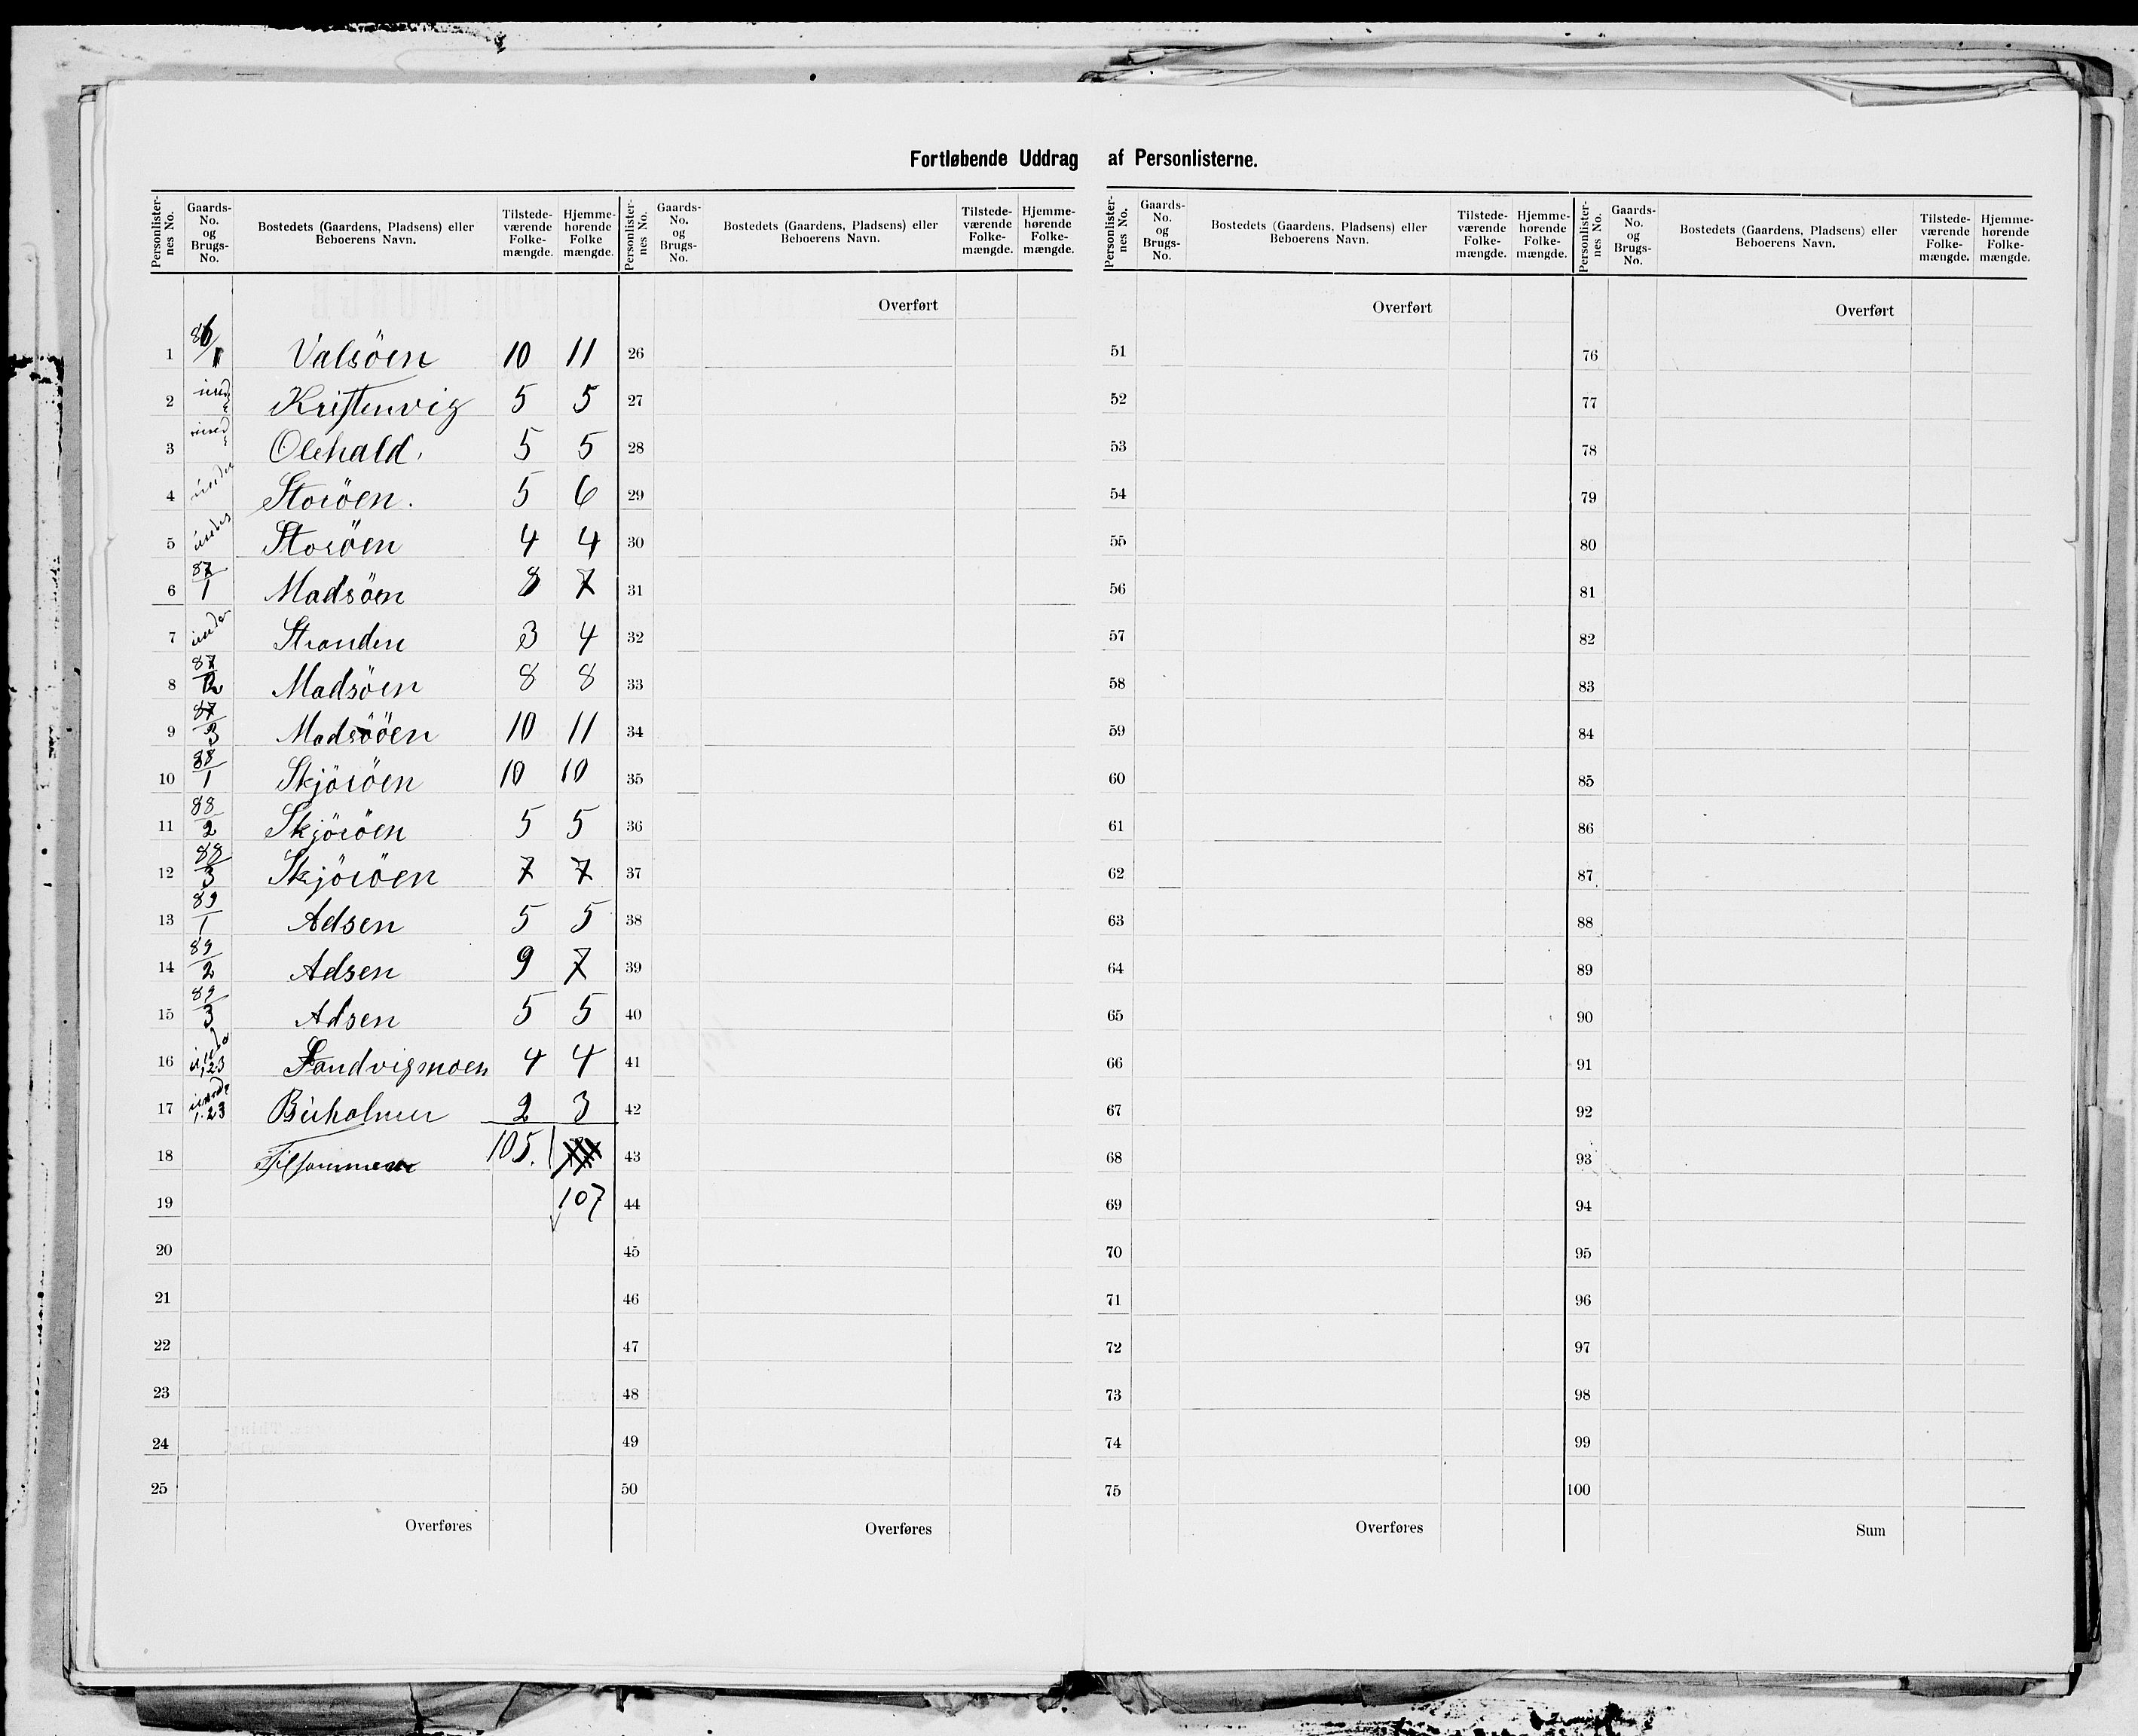 Fortløbende Uddrag af Personlisterne.
Personlister-nes No. Gaards-No. og Brugs-No. Bostedets (Gaardens, Pladsens) eller Beboerens Navn. Tilstede-værende Folke-mængde. Hjemme-hørende Folke mængde. Personlister-nes No. Gaards-No. og Brugs-No. Bostedets (Gaardens, Pladsens) eller Beboerens Navn. Tilstede-værende Folke-mængde. Hjemme-hørende Folke-mængde. Personlister-nes No. Gaards-No. og Brugs-No. Bostedets (Gaardens, Pladsens) eller Beboerens Navn. Tilstede-værende Folke-mængde. Hjemme-hørende Folke-mængde. Personlister-nes No. Gaards-No. og Brugs-No. Bostedets (Gaardens, Pladsens) eller Beboerens Navn. Tilstede-værende Folke-mængde. Hjemme-hørende Folke-mængde.
Overført Overført Overført
1 86/1 Valsöen 10 11 26 51 76
2 Kristenvig 5 5 27 52 77
3 Olehald. 5 5 28 53 78
4 under Storöen. 5 6 29 54 79
5 under Storöen 4 4 30 55 80
6 87/1 Madsöen 8 7 31 56 81
7 under Stranden 3 4 32 57 82
8 87/2 Madsöen 8 8 33 58 83
9 87/3 Madsöen 10 11 34 59 84
10 88/1 Skjöröen 10 10 35 60 85
11 88/2 Skjöröen 5 5 36 61 86
12 88/3 Skjöröen 7 7 37 62 87
13 89/1 Adsen 5 5 38 63 88
14 89/2 Adsen 9 7 39 64 89
15 89/3 Adsen 5 5 40 65 90
16 1,2,3 Sandvigmoen 4 4 41 66 91
17 1.2.3 Buholmen 2 3 42 67 92
18 Tilsammen 105. 43 68 93
19 107 44 69 94
20 45 70 95
21 46 71 96
22 47 72 97
23 48 73 98
24 49 74 99
25 50 75 100
Overføres Overføres Overføres Sum